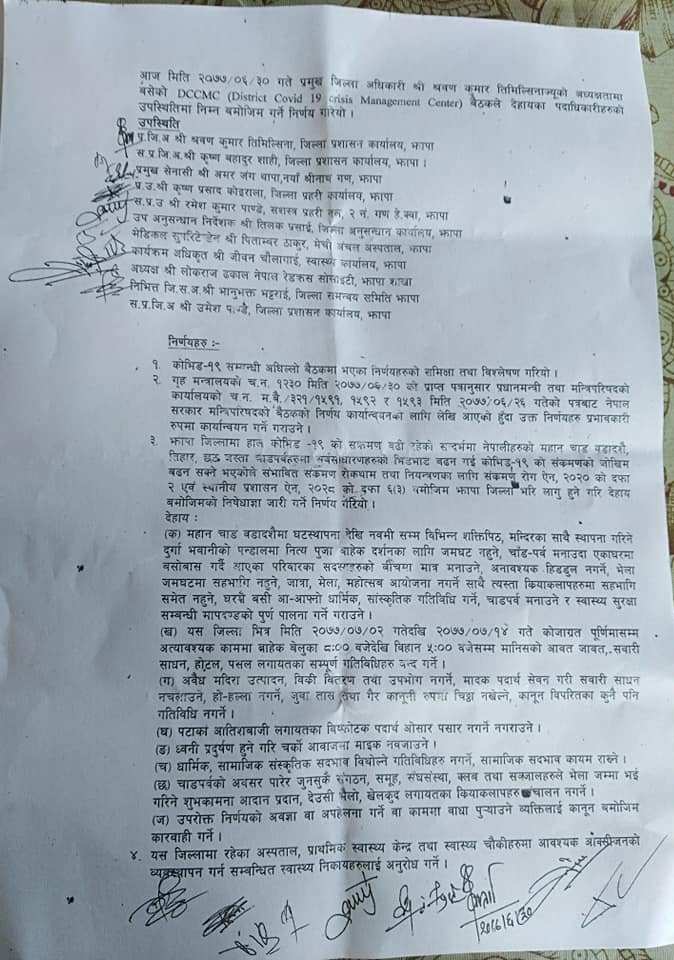 आज मिति २०७७/०६/३० गते प्रमुख जिल्ला अधिकारी श्री श्रवण कुमार तिमिल्सिनाज्यूको अध्यक्षतामा
बसेको DCCMC (District Covid 19 crisis Management Center) बैठकले देहायका पदाधिकारीहरुको
उपस्थितिमा निम्न बमोजिम गर्ने निर्णय गरियो ।
उपस्थिति
प्र.जि.अ श्री श्रवण कुमार तिमिल्सिना, जिल्ला प्रशासन कार्यालय, झापा
स.प्र.जि.अ.श्री कृष्ण बहादुर शाही, जिल्ला प्रशासन कार्यालय, झापा ।
प्रमुख सेनासी श्री अमर जंग थापा,नयाँ श्रीनाथ गण, झापा
प्र.उ.श्री कृष्ण प्रसाद कोइराला, जिल्ला प्रहरी कार्यालय, झापा
स.प्र.उ श्री रमेश कुमार पाण्डे, सशस्त्र प्रहरी बल, २ नं. गण हे.क्वा, झापा
उप अनुसन्धान निर्देशक श्री तिलक प्रसाई, जिल्ला अनुसन्धान कार्यालय, झापा
मेडिकल सुपरिटेन्डेन श्री पिताम्बर ठाकुर, मेची अंचल अस्पताल, झापा
कार्यक्रम अधिकृत श्री जीवन चौलागाई, स्वास्थ्य कार्यालय, झापा
अध्यक्ष श्री लोकराज ढकाल नेपाल रेडक्रस सोसाइटी, झापा शाखा
निभित्त जि.स.अ.श्री भानुभक्त भट्टराई, जिल्ला समन्वय समिति झापा
स.प्र.जि.अ श्री उमेश पाण्डे, जिल्ला प्रशासन कार्यालय, झापा
निर्णयहरु :-
१. कोभिड-१९ सम्बन्धी अघिल्लो बैठकमा भएका निर्णयहरुको समिक्षा तथा विश्लेषण गरियो ।
२. गृह मन्त्रालयको च.न. १२३० मिति २०७७/०६/३० को प्राप्त पत्रानुसार प्रधानमन्त्री तथा मन्त्रिपरिषदको
कार्यालयको च.न. म.बै./३२१/१५९१, १५९२ र १५९३ मिति २०७७/०६/२६ गतेको पत्रबाट नेपाल
सरकार मन्त्रिपरिषदको बैठकको निर्णय कार्यान्वयनको लागि लेखि आएको हुँदा उक्त निर्णयहरु प्रभावकारी
रुपमा कार्यान्वयन गर्ने गराउने ।
३. झापा जिल्लामा हाल कोभिड -१९ को संक्रमण बढी रहेको सन्दर्भमा नेपालीहरुको महान चाड बडादशै,
तिहार, छठ जस्ता चाडपर्वहरुमा सर्वसाधारणहरुको भिडभाड बढन गई कोभिड-१९ को संक्रमणको जोखिम
बढन सक्ने भएकोले संभावित संक्रमण रोकथाम तथा नियन्त्रणका लागि संक्रमण रोग ऐन, २०२० को दफा
२ एवं स्थानीय प्रशासन ऐन, २०२८ को दफा ६(३) बमोजिम झापा जिल्ला भरि लागु हुने गरि देहाय
बमोजिमको निषेधाज्ञा जारी गर्ने निर्णय गरियो ।
देहाय :
(क) महान चाड बडादशैमा घटस्थापना देखि नवमी सम्म विभिन्न शक्तिपिठ, मन्दिरका साथै स्थापना गरिने
दुर्गा भवानीको पन्डालमा नित्य पुजा बाहेक दर्शनका लागि जमघट नहुने, चाँड-पर्व मनाउदा एकाघरमा
बसोबास गर्दै आएका परिवारका सदस्यहरुको बीचमा मात्र मनाउने, अनावश्यक हिडडुल नगर्ने, भेला
जमघटमा सहभागि नहुने, जात्रा, मेला, महोत्सब आयोजना नगर्ने साथै त्यस्ता क्रियाकलापहरुमा सहभागि
समेत नहुने, घरमै बसी आ-आफ्नो धार्मिक, सांस्कृतिक गतिविधि गर्ने, चाडपर्व मनाउने र स्वास्थ्य सुरक्षा
सम्बन्धी मापदण्डको पुर्ण पालना गर्ने गराउने ।
(ख) यस जिल्ला भित्र मिति २०७७/०७/०२ गतेदखि २०७७/०७/१४ गते कोजाग्रत पूर्णिमासम्म
अत्यावश्यक काममा बाहेक बेलुका ८:०० बजेदेखि विहान ५:०० बजेसम्म मानिसको आवत जावत, सवारी
साधन, होटल, पसल लगायतका सम्पूर्ण गतिविधिहरु बन्द गर्ने ।
(ग) अवैध मदिरा उत्पादन, विक्री वितरण तथा उपभोग नगर्ने, मादक पदार्थ सेवन गरी सवारी साधन
नचलाउने, हो-हल्ला नगर्ने, जुवा तास तथा गैर कानूनी रुपमा चिठ्ठा नखेल्ने, कानून विपरितका कुनै पनि
गतिविधि नगर्ने ।
(घ) पटाका आतिशबाजी लगायतका विष्फोटक पदार्थ ओसार पसार नगर्ने नगराउने ।
(ङ) ध्वनी प्रदुर्षण हुने गरि चर्को आवाजमा माइक नबजाउने ।
(च) धार्मिक, सामाजिक सांस्कृतिक सदभाव विथोल्ने गतिविधिहरु नगर्ने, सामाजिक सदभाव कायम राख्ने ।
(छ) चाडपर्वको अवसर पारेर जुनसुकै संगठन, समूह, संघसंस्था, क्लव तथा सञ्जालहरुले भेला जम्मा भई
गरिने शुभकामना आदान प्रदान, देउसी भैलो, खेलकुद लगायतका क्रियाकलापहरु संचालन नगर्ने ।
(ज) उपरोक्त निर्णयको अवज्ञा वा अपहेलना गर्ने वा काममा बाधा पुऱ्याउने व्यक्तिलाई कानून बमोजिम
कारवाही गर्ने ।
४. यस जिल्लामा रहेका अस्पताल, प्राथमिक स्वास्थ्य केन्द्र तथा स्वास्थ्य चौकीहरुमा आवश्यक अक्सीजनको
व्यवस्थापन गर्न सम्बन्धित स्वास्थ्य निकायहरुलाई अनुरोध गर्ने ।